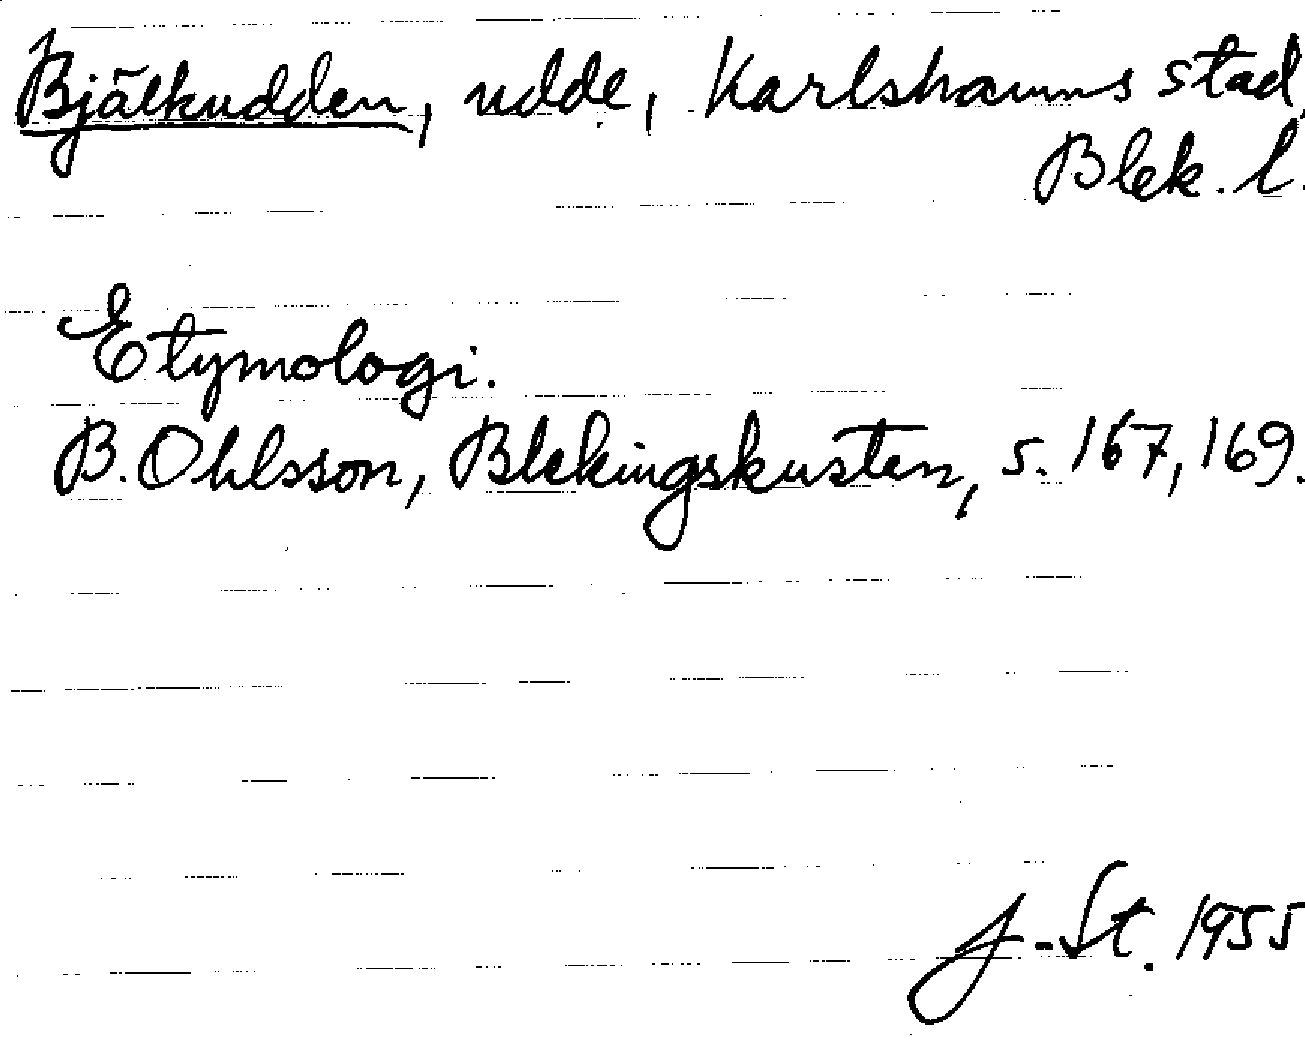 Bjälkudden, udde, Karlshamns stad,
Blek. l.
Etymologi.
B. Ohlsson, Blekingskusten, s. 167, 169.
J-St. 1955